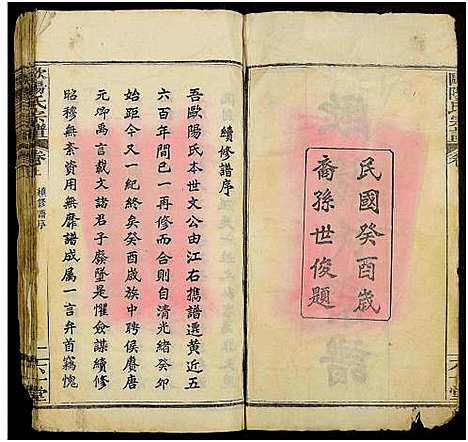 民國癸酉歲
裔孫世俊題
續修譜序
吾歐陽氏本世文公由江右擕譜遷黃近五
六百年間已一再修而自清光緒癸卯
始距今又一紀終矣癸酉歲族中聘侯賡唐
元卿禹言載文諸君子廢墮是懼僉謀續修
昭穆無紊資用無靡譜成屬一言弁首竊愧
歐陽氏宗譜
卷首上
續修譜序
一
六一堂
歐陽氏宗譜
卷
六一堂
譜